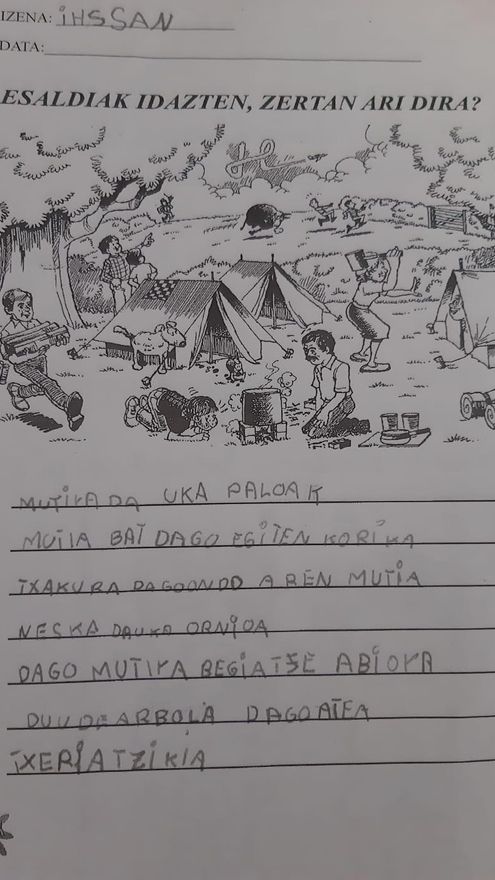 IZENA: iHSSAN
DATA:
ESALDIAK IDAZTEN, ZERTAN ARI DIRA?
MUTIKA DA UKA PALOAK
MUTIIA BAT DAGO EGITEN KORIKA
TXAKURA DAGO ONDO AREN MUTIA
NESKA DAUKA ORNIOA
DAGO MUTIKA BEGIATSE ABIOKA
ARBOLA DAGO ATEA
TXERIA TZIKIA